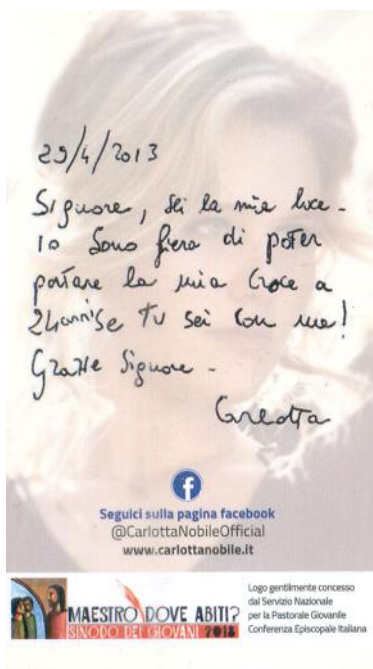 29/4/2013
Signore, sei la mia luce -
Io sono fiera di poter
portare la mia croce a
24 anni se tu sei con me!
Grazie Signore -
Carlotta
f
Seguici sulla pagina facebook
@CarlottaNobileOfficial
www.carlottanobile.it
MAESTRO DOVE ABITI?
SINODO DEI GIOVANI 2018
Logo gentilmente concesso
dal Servizio Nazionale
per la Pastorale Giovanile
Conferenza Episcopale Italiana